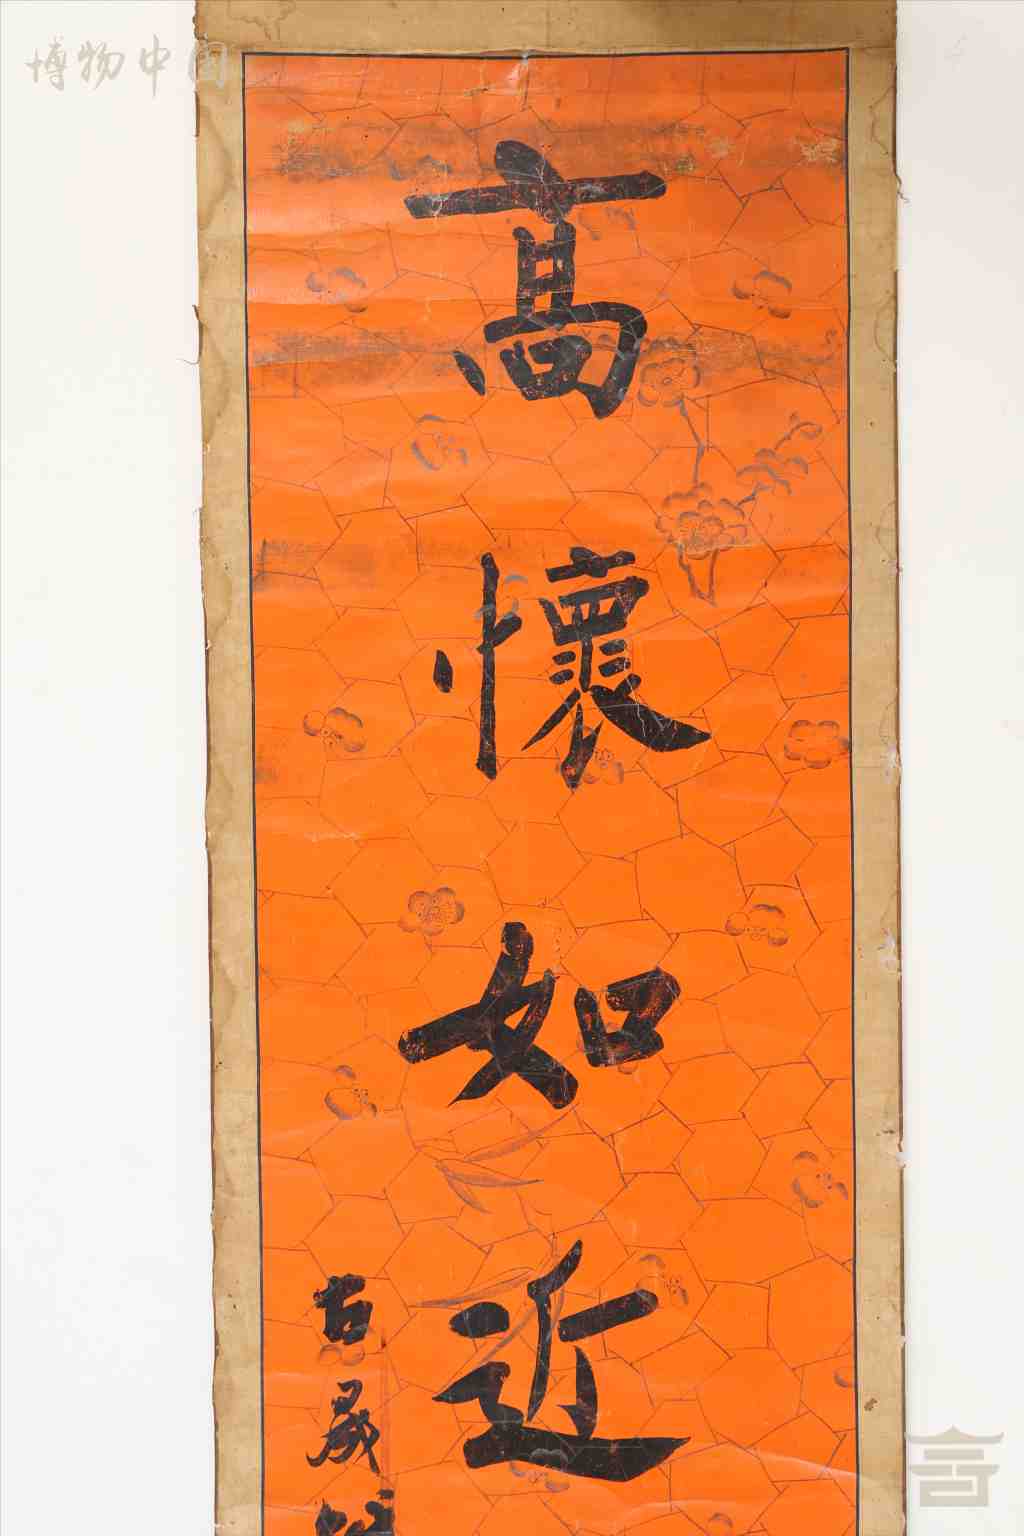 博物中国
高懷如近
古